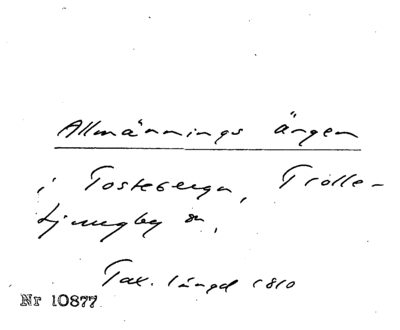 Allmännings ängen
i Tosteberga, Trolle-
Ljungby sn,
Tax. längd 1810
Nr 10877